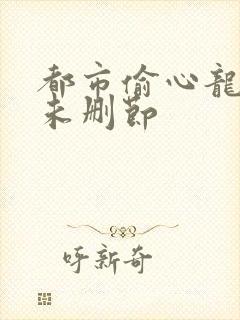 都市偷心龍
未删节
呼新奇